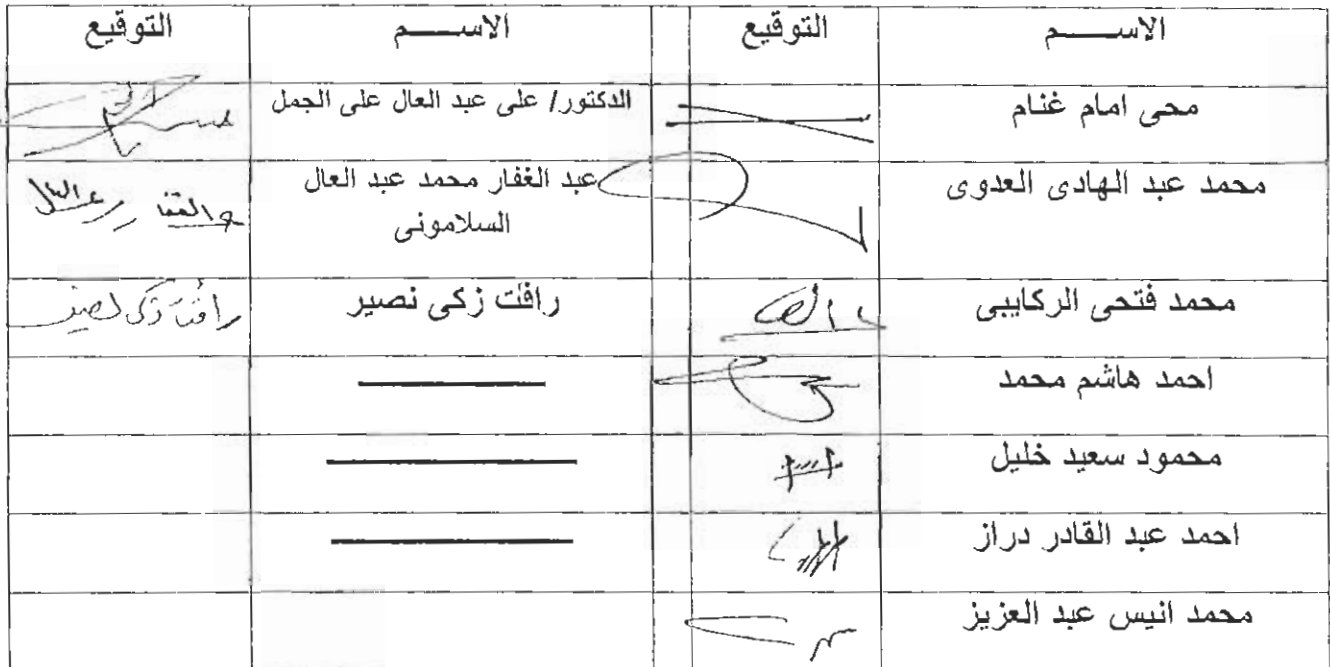 الاســـم التوقيع الاســـم التوقيع
محى امام غنام الدكتور/ على عبد العال على الجمل
محمد عبد الهادى العدوى عبد الغفار محمد عبد العال
السلامونى
محمد فتحى الركايبى رافت زكى نصير رافت زكى نصير
احمد هاشم محمد
محمود سعيد خليل
احمد عبد القادر دراز
محمد انيس عبد العزيز